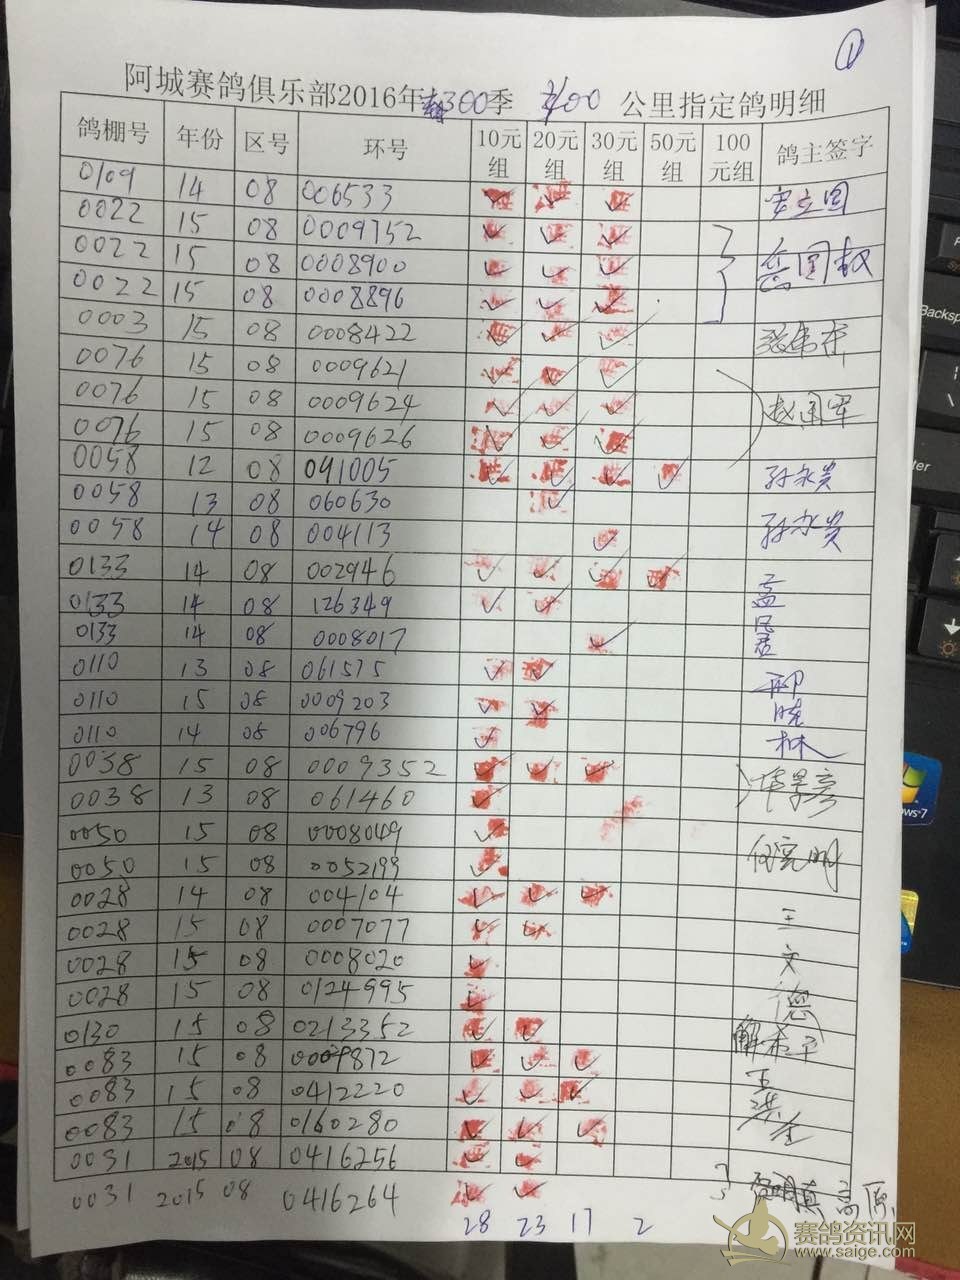 ①
阿城赛鸽俱乐部2016年 300季 300 公里指定鸽明细
鸽棚号 年份 区号 环号 10元组 20元组 30元组 50元组 100元组 鸽主签字
0109 14 08 006533 ✓ ✓ ✓
0022 15 08 0009752 ✓ ✓ ✓
0022 15 08 0008900 ✓ ✓ ✓
0022 15 08 0008896 ✓ ✓ ✓
0003 15 08 0008422 ✓ ✓ ✓
0076 15 08 0009621 ✓ ✓ ✓
0076 15 08 0009624 ✓ ✓ ✓ 赵国军
0076 15 08 0009626 ✓ ✓ ✓
0058 12 08 091005 ✓ ✓ ✓ ✓ 孙永贵
0058 13 08 060630 ✓
0058 14 08 004113 ✓ 孙永贵
0133 14 08 002946 ✓ ✓ ✓ ✓
0133 14 08 126349 ✓ ✓ 孟
0133 14 08 0008017 ✓
0110 13 08 061575 ✓ ✓ 邢
0110 15 08 0009203 ✓ ✓ 晓
0110 14 08 006796 ✓ 林
0038 15 08 0009352 ✓ ✓ ✓
0038 13 08 061460 ✓
0050 15 08 0008049 ✓
0050 15 08 0052199 ✓
0028 14 08 004104 ✓ ✓ ✓ 王
0028 15 08 0007077 ✓ ✓
0028 15 08 0008020 ✓ 文
0028 15 08 0124995 ✓ 德
0130 15 08 0213352 ✓ ✓
0083 15 08 0009872 ✓ ✓ ✓
0083 15 08 0412220 ✓ ✓ ✓
0083 15 08 0160280 ✓ ✓ ✓
0031 2015 08 0416256 ✓ ✓
0031 2015 08 0416264 ✓ ✓
28 23 17 2
赛鸽资讯网
www.saige.com
Backsp